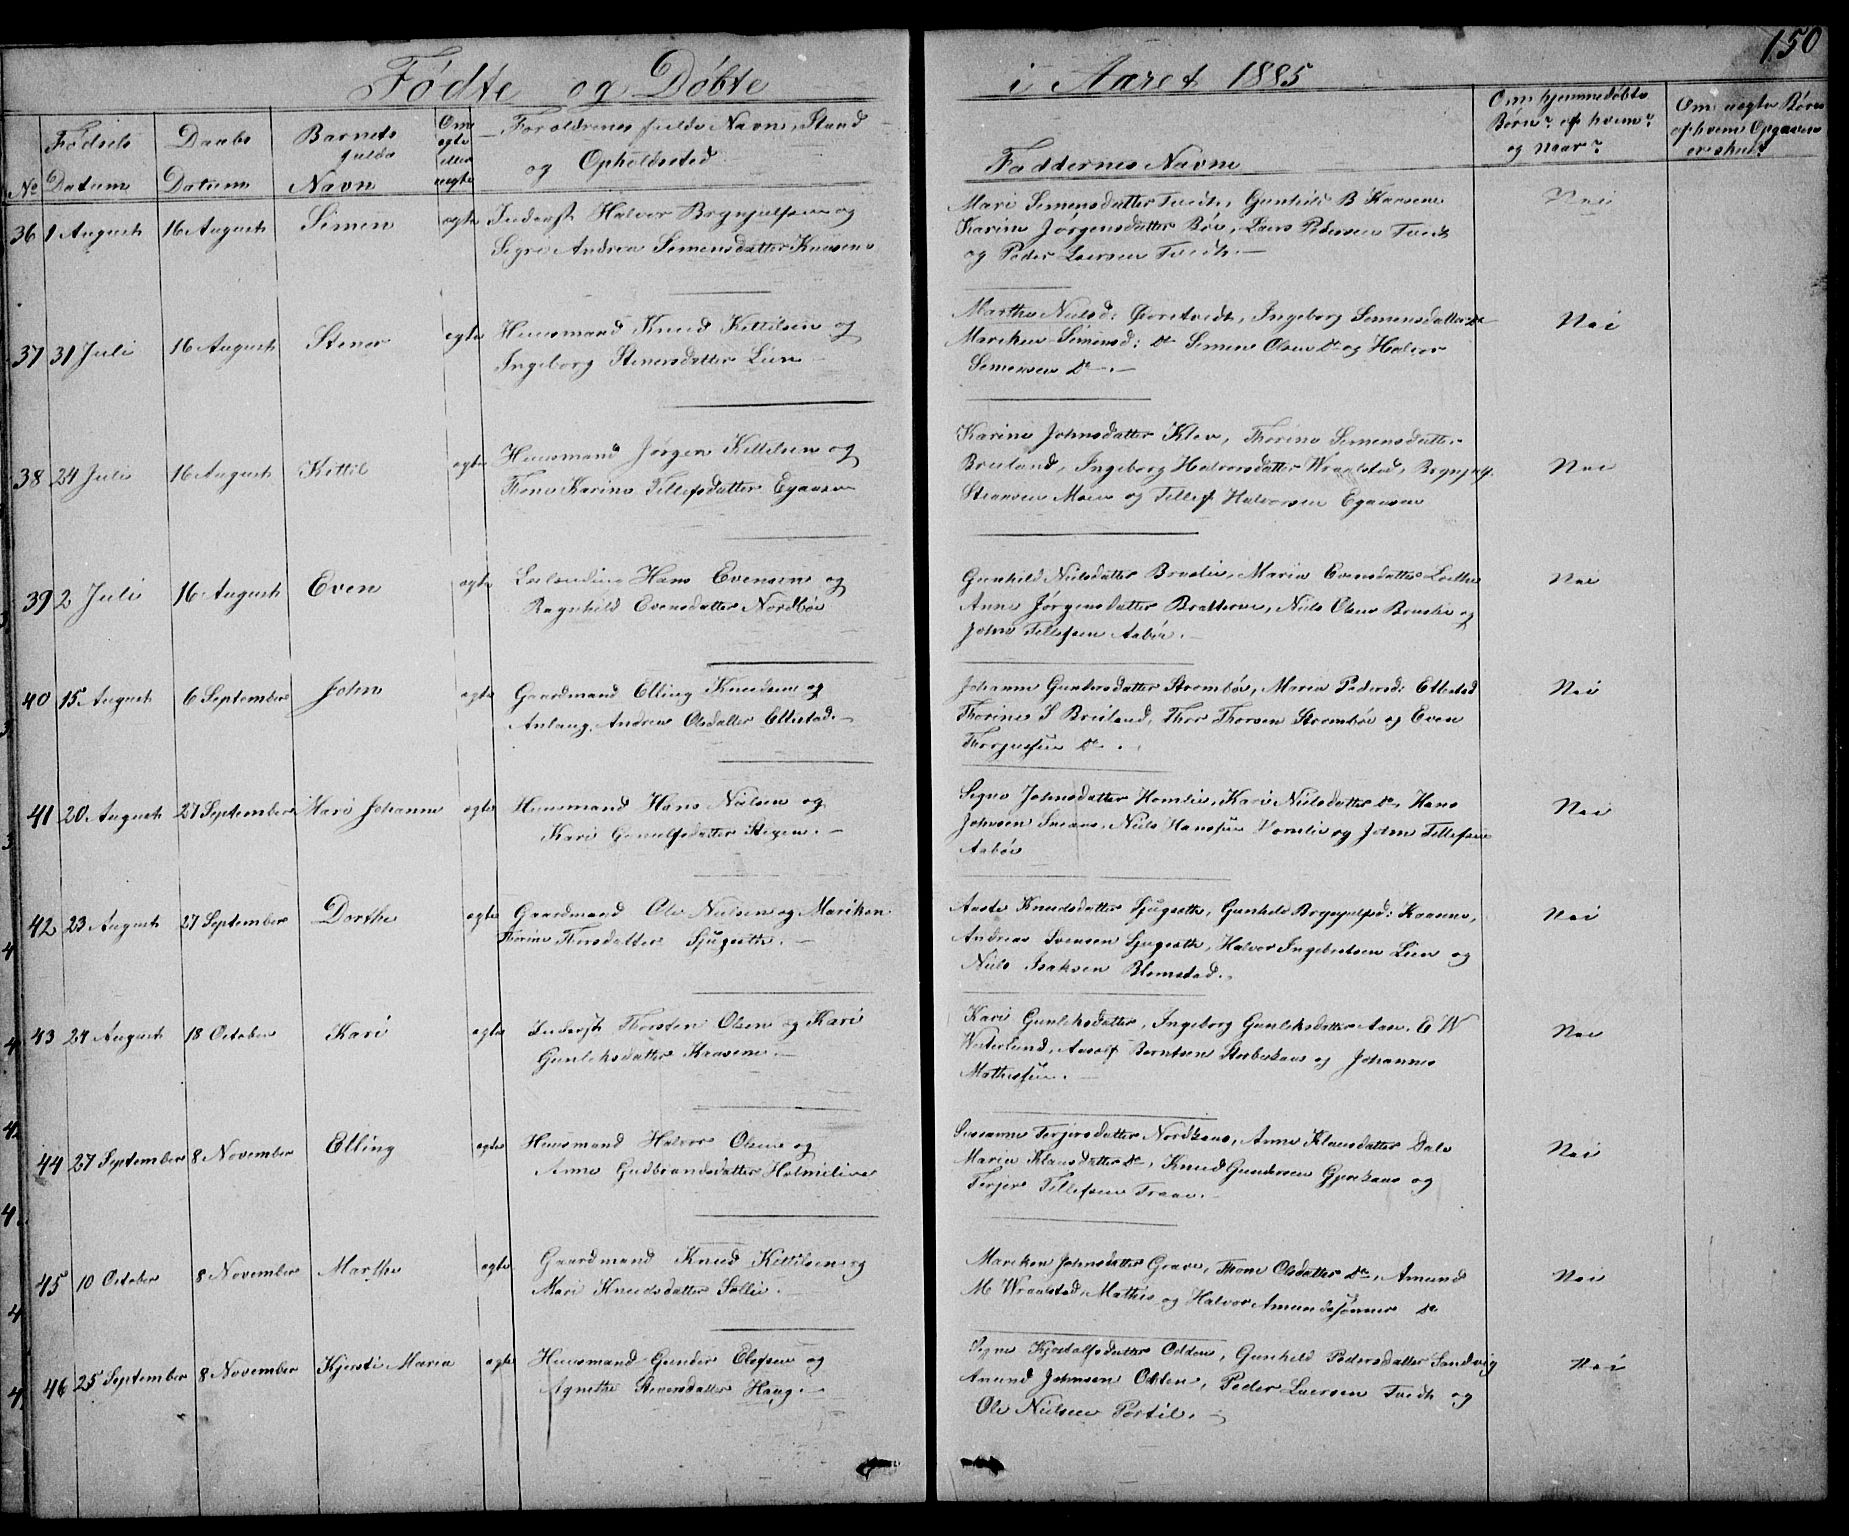 150
Fødte og Døbte i Aaret 1885
No
Fødsels Datum
Daabs Datum
Barnets fulde Navn
Om ægte eller uægte
Forældrenes fulde Navn, Stand og Opholdssted
Faddernes Navne
Om hjemmedøbte Børn? af hvem? og naar?
Om uægte Børn af hvem Opgaven er skeet
36 1 August 16 August Simen ægte Inderst Halvor Brynjulfsen og
Andrea Simensdatter Kaasene
Mari Simensdatter Tvedt, Gunhild B Kaasene
Karine Jørgensdatter Bøe, Lars Pedersen Tvedt
og Peder Larsen Tvedt.
Nei
37 31 Juli 16 August Stener ægte Huusmand Knud Kittilsen og
Ingeborg Stenersdatter Lien
Marthe Nielsd: Ingeborg Simensdatter Do
Mariken Simensd: Do Simen Olsen Do og Halvor
Simensen Do.
Nei
38 24 Juli 16 August Kittil ægte Huusmand Jørgen Kittilsen og
Thone Karine Tellefsdatter Egaasen
Karine Johnsdatter Klev, Thorine Simensdatter
Breiland, Ingeborg Halvorsdatter Wraalstad,
Moen og Tellef Halvorsen Egaasen
Nei
39 2 Juli 16 August Even ægte Leilending Hans Evensen og
Ragnhild Evensdatter Nordbøe
Gunhild Nielsdatter Maria Evensdatter
Anne Jørgensdatter Niels Olsen og
John Tellefsen Aabøe.
Nei
40 15 August 6 September John ægte Gaardmand Elling Knudsen og
Anlaug Andrea Olsdatter Ettestad.
Johanne Gundersdatter Strømbøe, Maria Pedersd: Ettestad
Thorine S Breiland, Thor Thorsen Strombøe og Even
Do.
Nei
41 20 August 27 September Mari Johanne ægte Huusmand Hans Nielsen og
Kari Stigen.
Signe Johnsdatter Homlie, Kari Nielsdatter Do, Hans
Johnsen Niels Hansen Homlie og John Tellefsen
Aabøe
Nei
42 23 August 27 September Dorthe ægte Gaardmand Ole Nielsen og Mariken
Thorine Thorsdatter Sjugseth.
Aaste Knudsdatter Sjugseth, Gunhild Brynjulfsd: Kaasene,
Andreas Svensen Sjugseth, Halvor Ingebretsen Lien og
Niels Isaksen Blomstad.
Nei
43 24 August 18 October Kari ægte Inderst Thorsten Olsen og Kari
Gunleksdatter Kaasene.
Kari Gunleksdatter, Ingeborg Gunleksdatter Aase. E W
Westerlund, Berntsen og Johannes
Mathisen.
Nei
44 27 September 8 November Elling ægte Huusmand Halvor Olsen og
Anne Gudbrandsdatter Holmelien
Susanne Terjersdatter Anne Klausdatter Dale
Maria Klausdatter Do, Knud Gundersen og
Terjer Tellefsen Traae.
Nei
45 10 October 8 November Marthe ægte Gaardmand Knud Kittilsen og
Mari Knudsdatter Sollie.
Mariken Johnsdatter Grave, Thone Olsdatter Do, Amund
M. Wraalstad, Mathis og Halvor Amundssønner Do
Nei
46 25 September 8 November Kjersti Maria ægte Huusmand Gunder Olefsen og
Agnethe Haug.
Signe Odden, Gunhild Pedersdatter Sandvig
Amund Johnsen Odden, Peder Larsen Tvedt og
Ole Nielsen
Nei